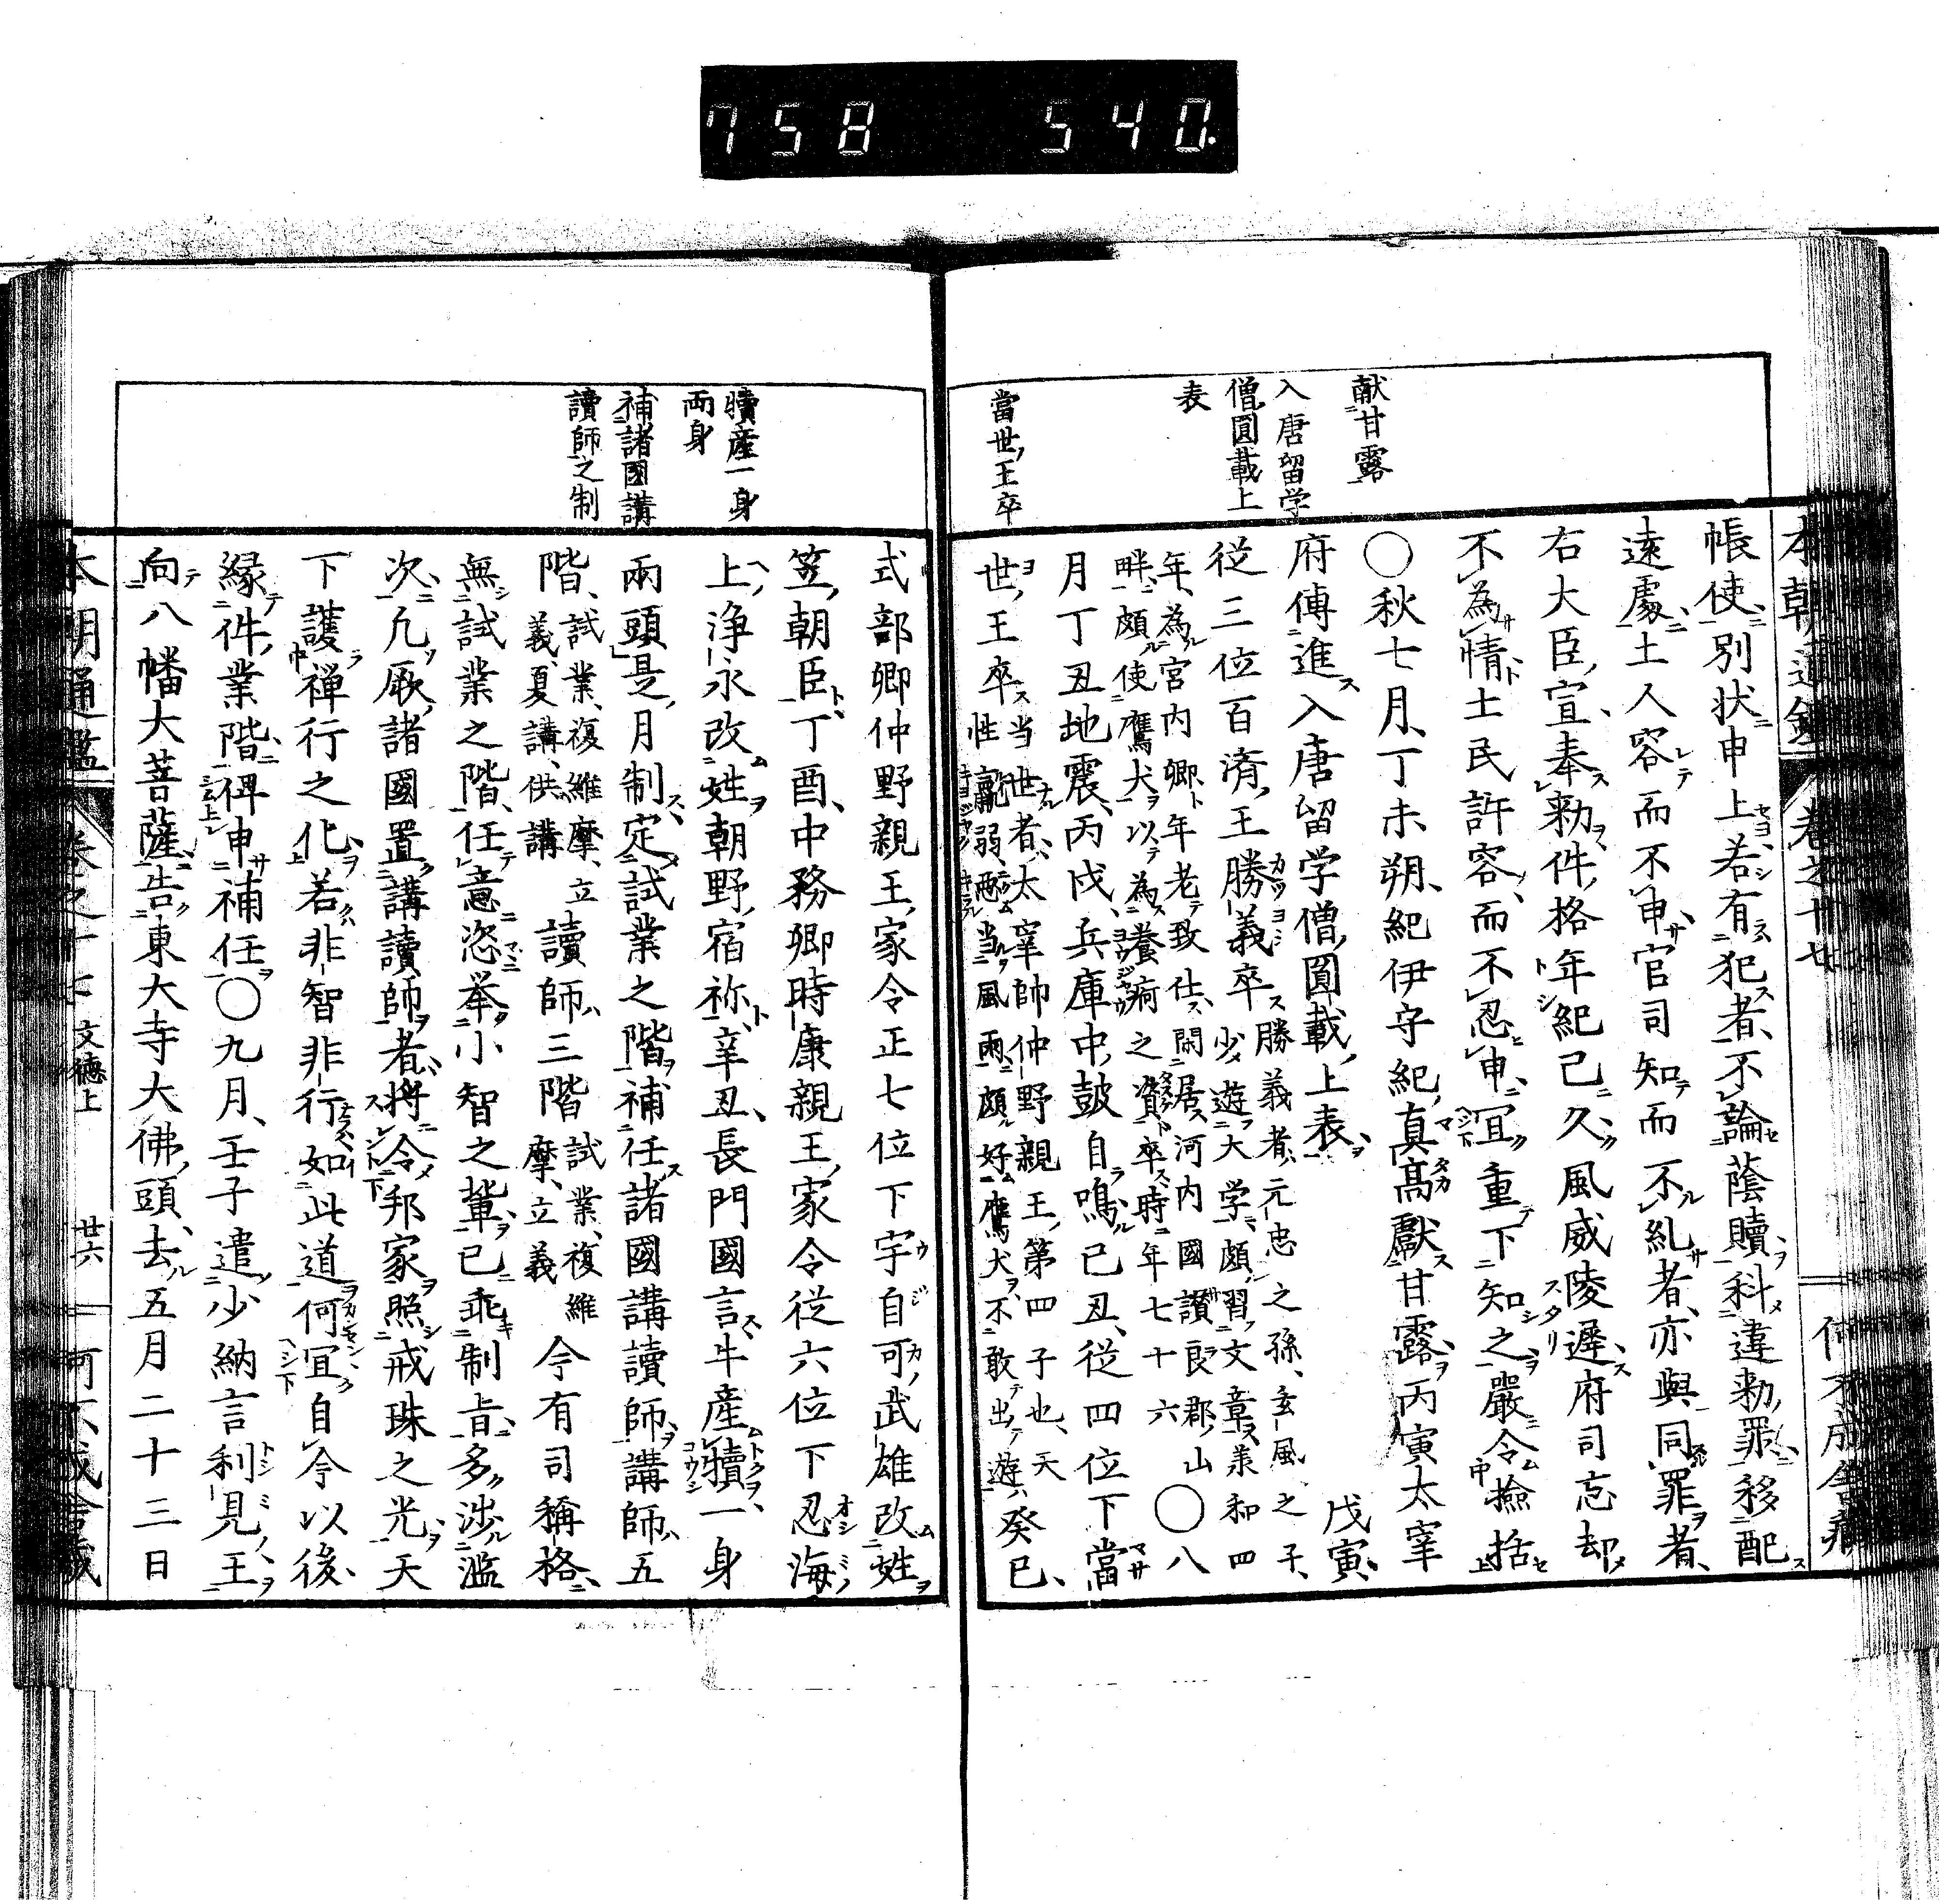 758 540.
献甘露
入唐留学
僧圓載上
表
當世王卒
本朝通鑑 卷之十七
帳使別状申上若有犯者不論蔭贖科違勅罪移配
遠處土人容而不申官司知而不糺者亦與同罪者
右大臣宣奉勅件格年紀已久風威陵遲府司忘却
不為情土民許容而不忍申冝重下知之嚴令撿括
○秋七月丁未朔紀伊守紀真髙獻甘露丙寅太宰
府傳進入唐留学僧圓載上表 戊寅
從三位百済王勝義卒勝義者元忠之孫玄風之子
少遊大学頗習文章兼和四
年為宮内卿年老致仕閑居河内國讃良郡山
畔頗使鷹犬以為養痾之資卒時年七十六○八
月丁丑地震丙戌兵庫中鼓自鳴己丑從四位下當
世王卒当世者太宰帥仲野親王第四子也天
性羸弱当風雨頗好鷹犬不敢出遊癸巳
犢産一身
両身
補諸國講
讀師之制
式部卿仲野親王家令正七位下宇自可武雄改姓
笠朝臣丁酉中務卿時康親王家令從六位下忍海
上浄永改姓朝野宿祢辛丑長門國言牛産犢一身
兩頭是月制定試業之階補任諸國講讀師講師五
階試業複維摩立
義夏講供講讀師三階試業複維
摩立義今有司稱格
無試業之階任意恣挙小智之輩已乖制旨多渉濫
次凢厥諸國置講讀師者将令邦家照戒珠之光天
下護禅行之化若非智非行如此道何冝自今以後
縁件業階碑申補任○九月壬子遣少納言利見王
向八幡大菩薩告東大寺大佛頭去五月二十三日
本朝通鑑 卷之十七 文徳上 廿六